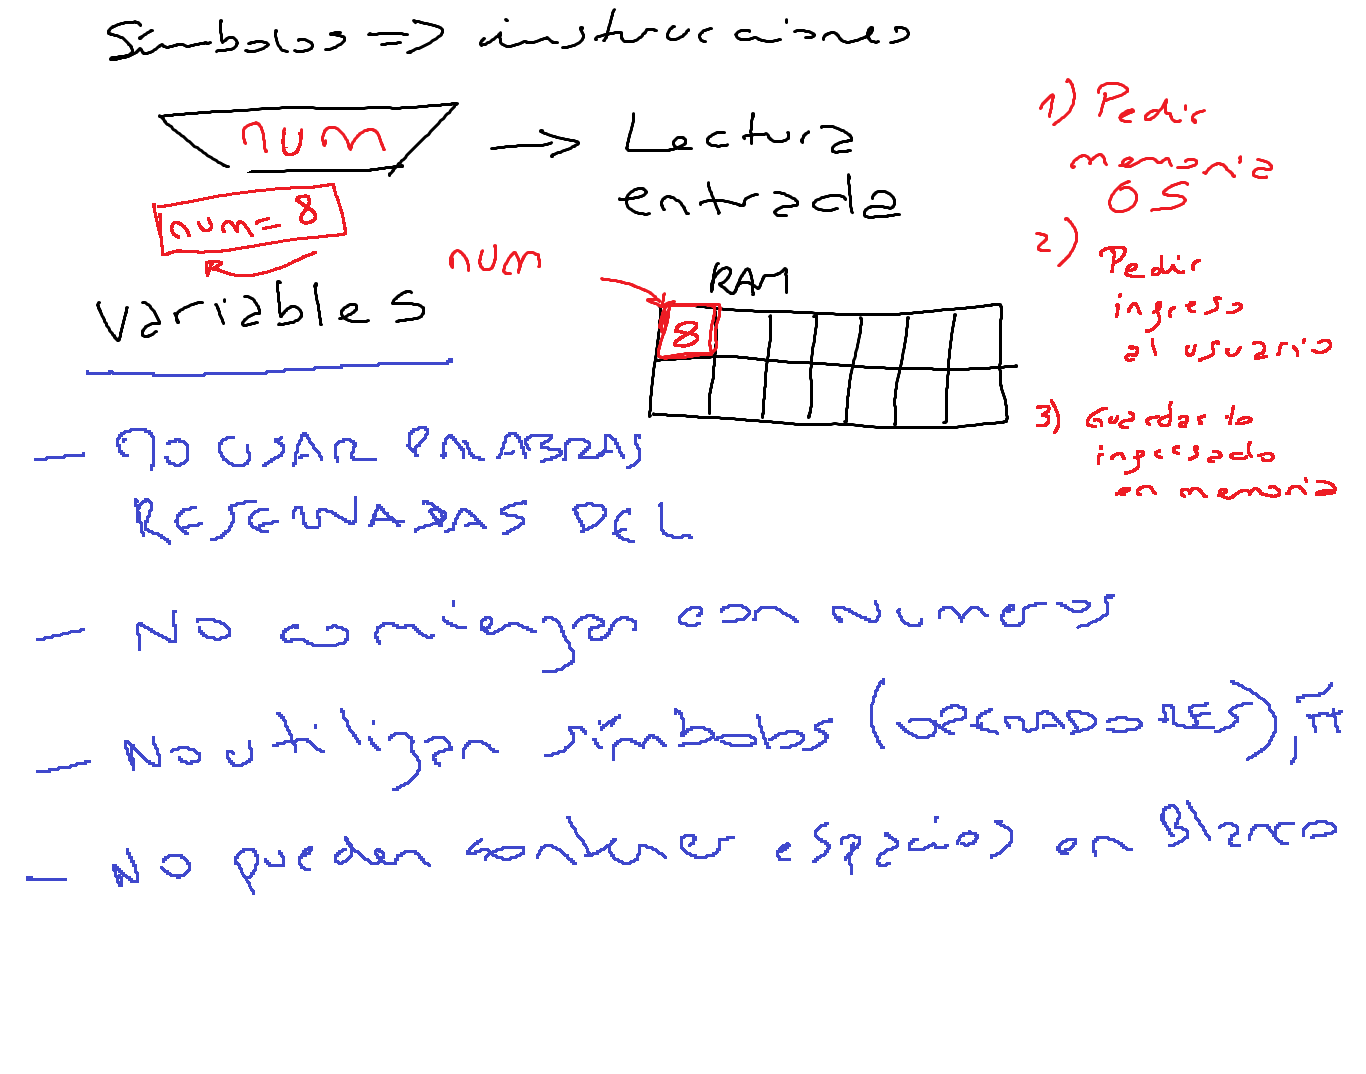 Símbolos => instrucciones
num → Lectura
entrada
num= 8
num
RAM
8
1) Pedir
memoria
OS
2) Pedir
ingreso
al usuario
3) Guardar lo
ingresado
en memoria
variables
- NO USAR PALABRAS
RESERVADAS DEL
- NO comienzan con Numeros
- No utilizan símbolos (OPERADORES), ñ
- NO pueden contener espacios en Blanco